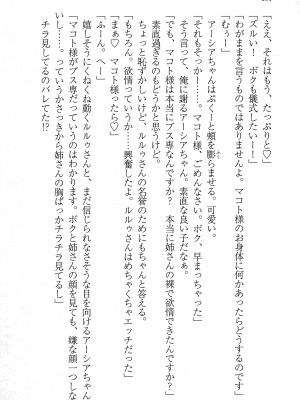 「ええ、それはもう、たっぷりと♡」
「ズルい！　ボクも儀式したいーー」
「わがままを言うものではありませんよ。マコト様のお身体に何かあったらどうするのです」
「むぅー」
アーシアちゃんはぷくーと頬を膨らませる。可愛い。
「それもそっかー……。マコト様、ごめんなさい。ボク、早まっちゃった」
そう言って、俺に謝るアーシアちゃん。素直な良い子だなぁ。
「でも、マコト様は本当にブス専なんですか？　本当に姉さんの裸で欲情できたんですか？」
素直過ぎるのもどうかと思うけど。
ちょっと恥ずかしいけど、ルルゥさんの名誉のためにもちゃんと答える。
「もちろん。欲情っていうか……興奮したよ。ルルゥさんはめちゃくちゃエッチだった」
「まぁ♡　マコト様ったら♡」
「ふーん。へー」
嬉しそうにくねくね動くルルゥさんと、まだ信じられなさそうな目を向けるアーシアちゃん。
「マコト様がブス専だっていうのはわかります。ボクと姉さんの顔を見ても、嫌な顔一つしな
いし……。っていうかさっきから姉さんの胸ばっかチラチラ見てるし」
チラ見してるのバレてた!?